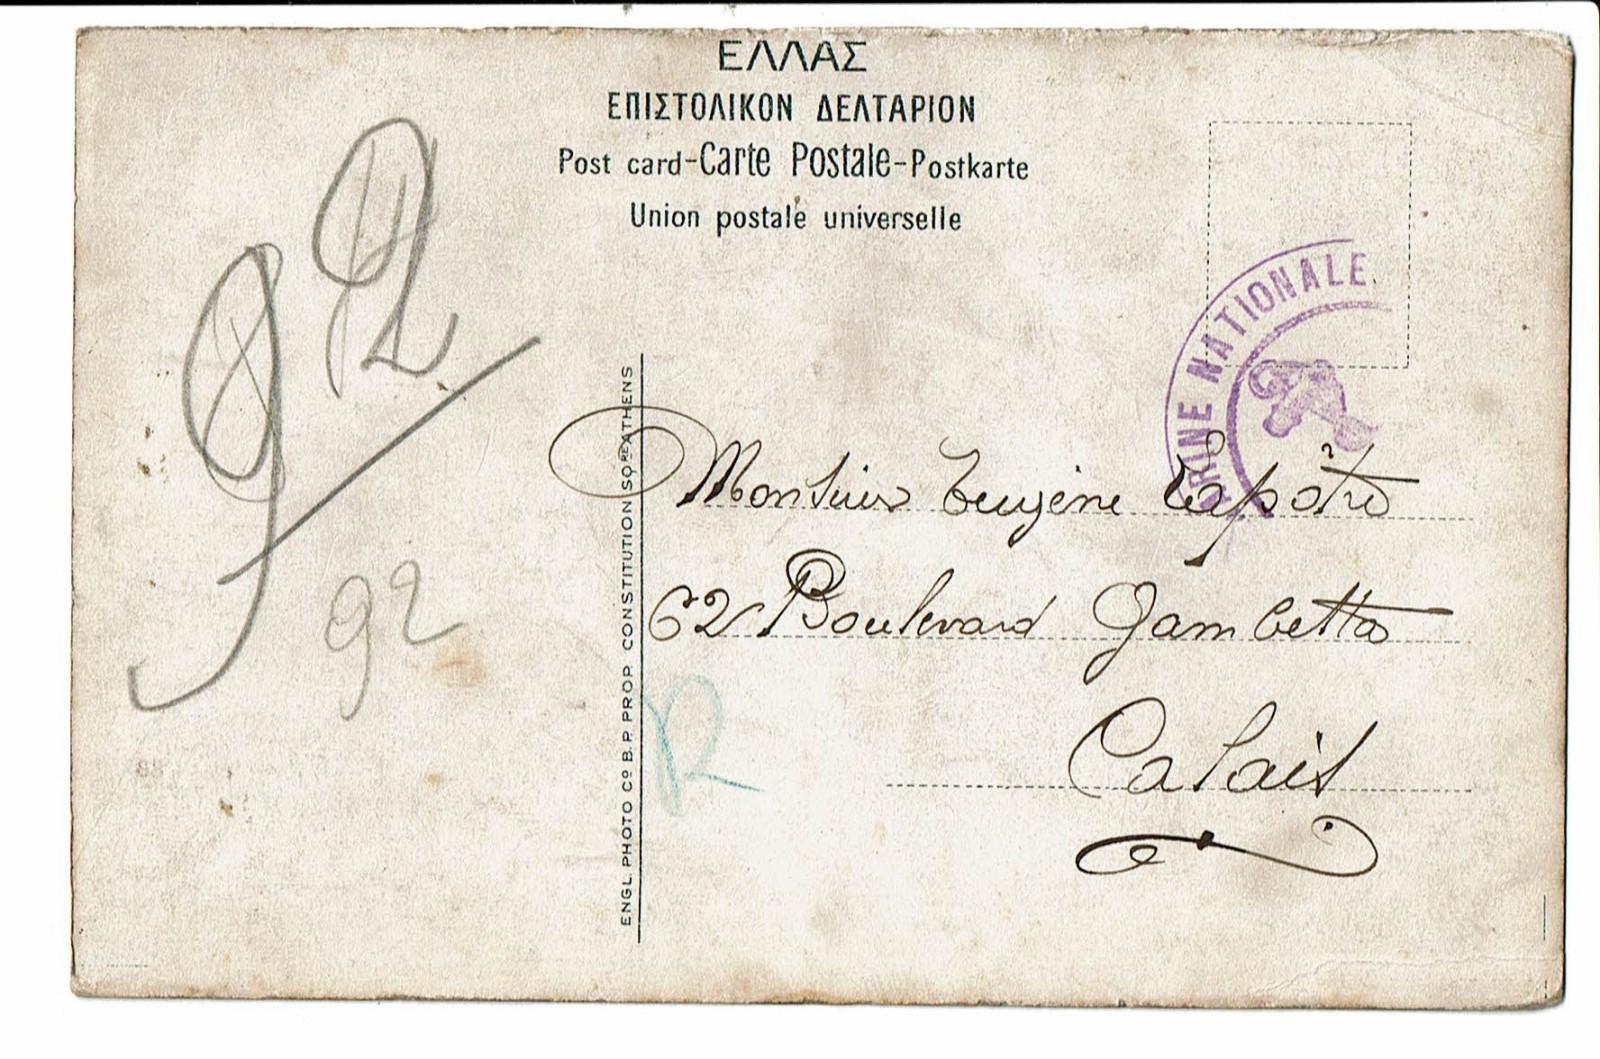 ΕΛΛΑΣ
ΕΠΙΣΤΟΛΙΚΟΝ ΔΕΛΤΑΡΙΟΝ
Post card-Carte Postale-Postkarte
Union postale universelle
92
92
ARINE NATIONALE
Monsieur Eugène Lepôtre
62 Boulevard Gambetta
Calais
ENGL. PHOTO Cº B. P. PROP. CONSTITUTION SQRE ATHENS
R